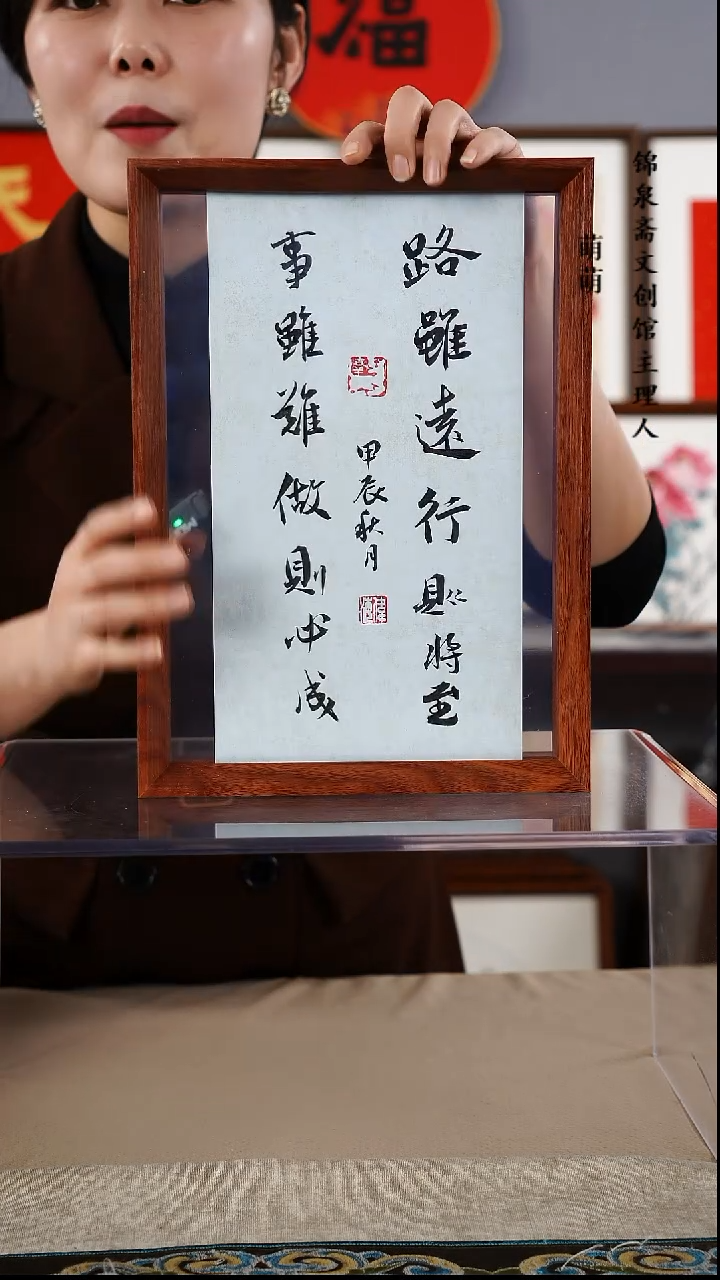 福
锦泉斋文创馆主理人
萌萌
路雖遠行則將至
事雖難做則必成
甲辰秋月